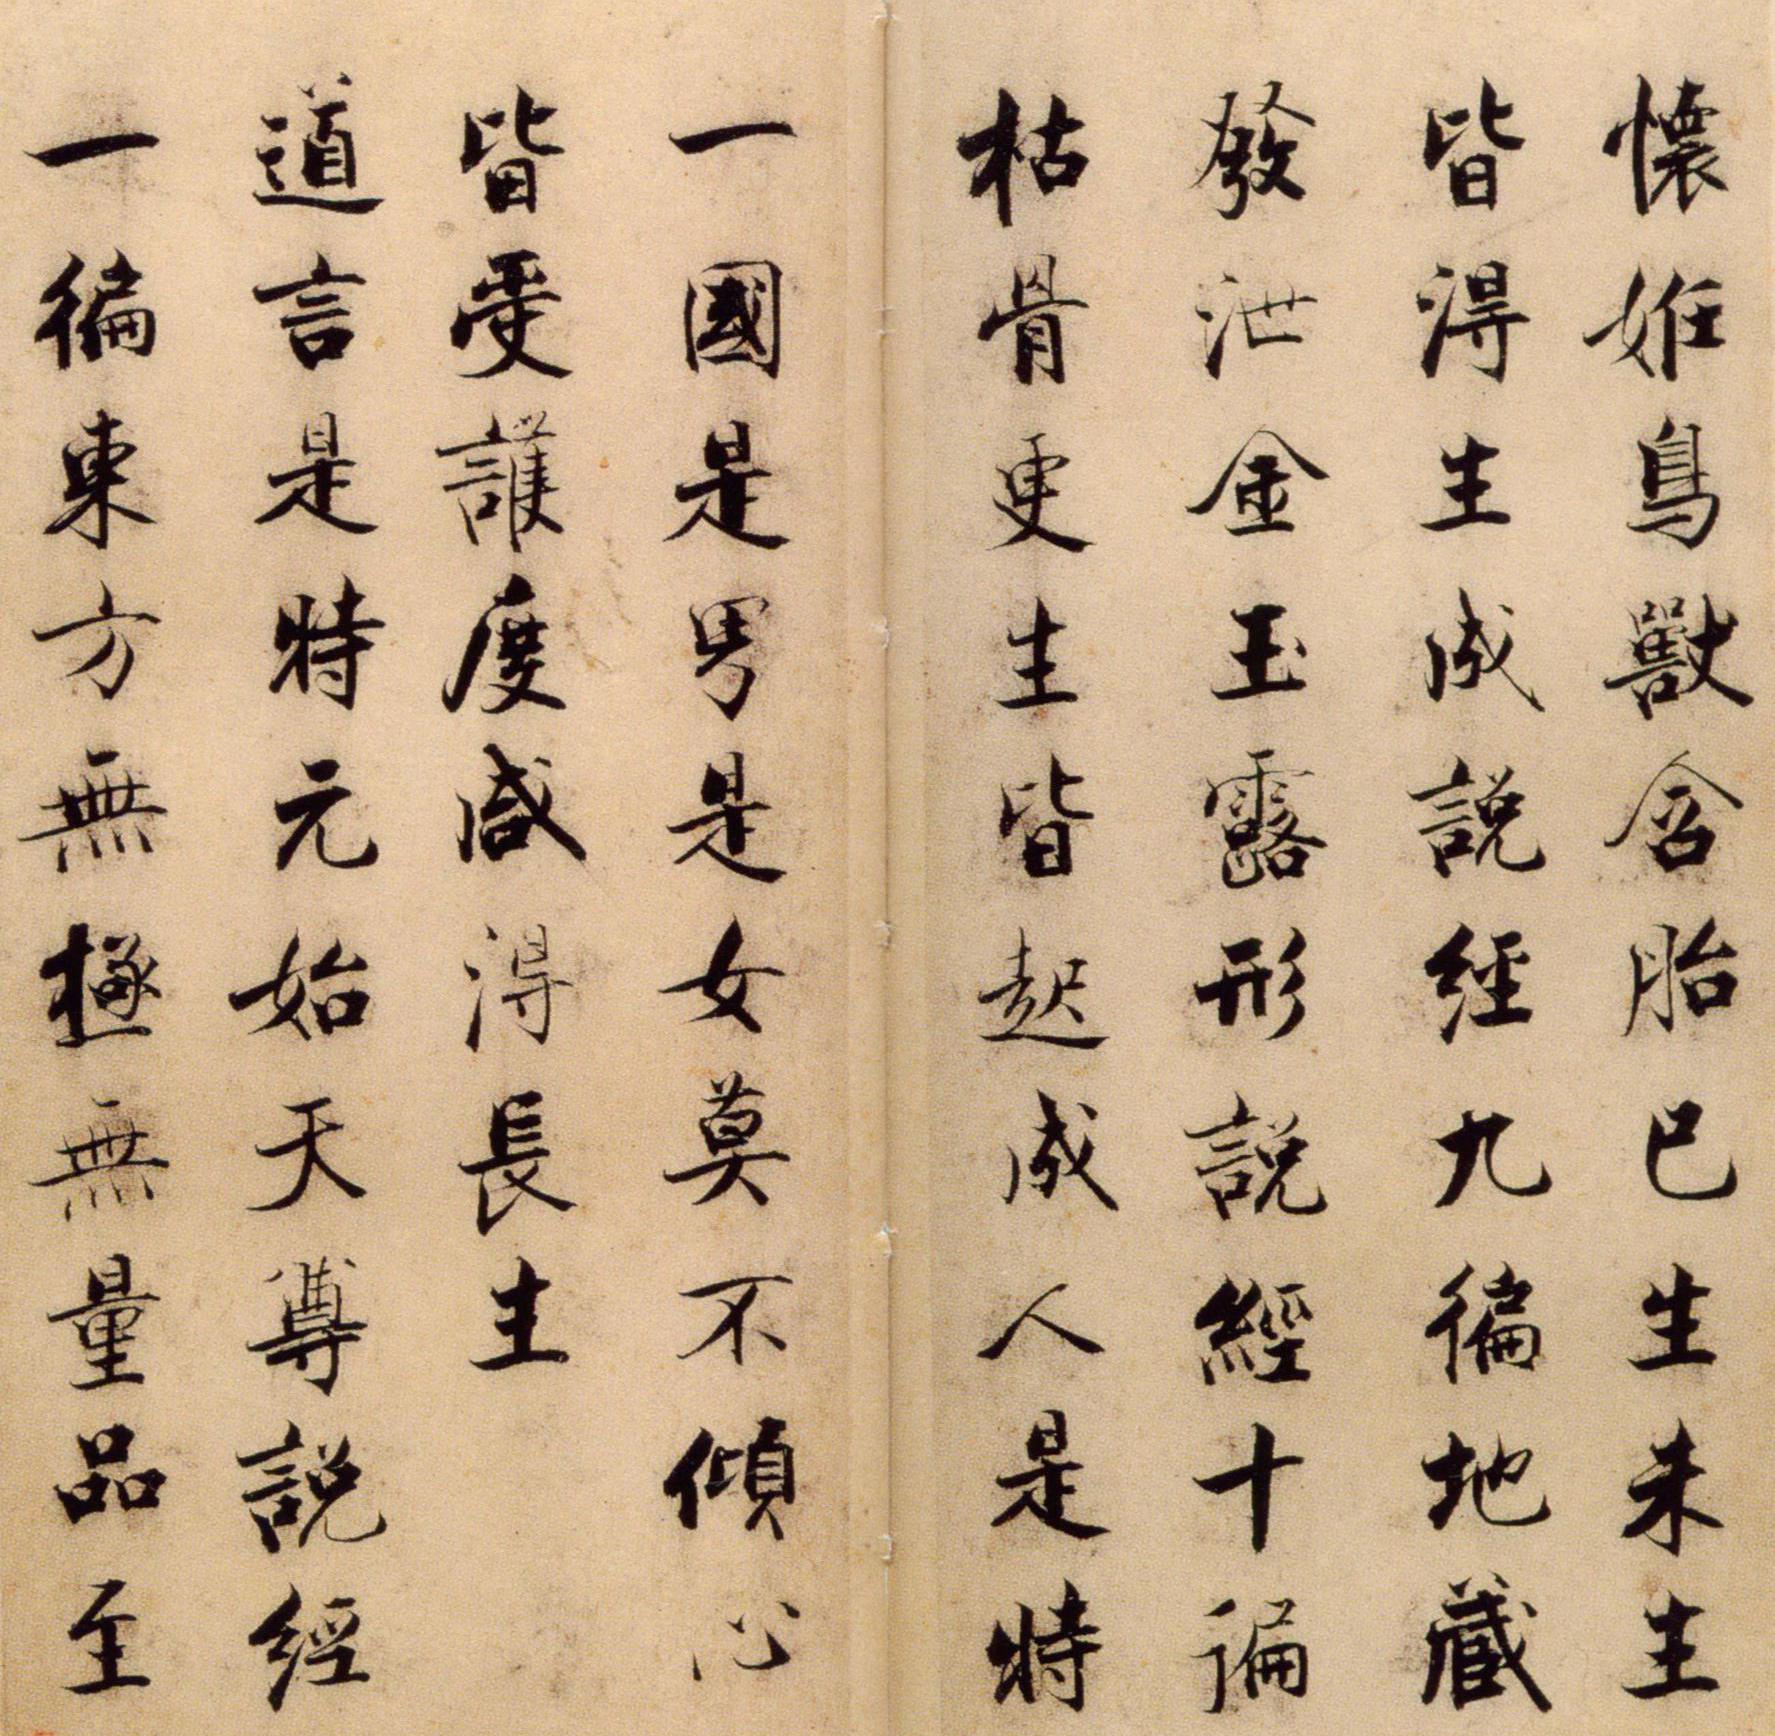 懷妊鳥獸含胎已生未生
皆得生成説經九徧地藏
發泄金玉露形説經十遍
枯骨更生皆起成人是時
一國是男是女莫不傾心
皆受護度咸得長生
道言是時元始天尊説經
一徧東方無極無量品至